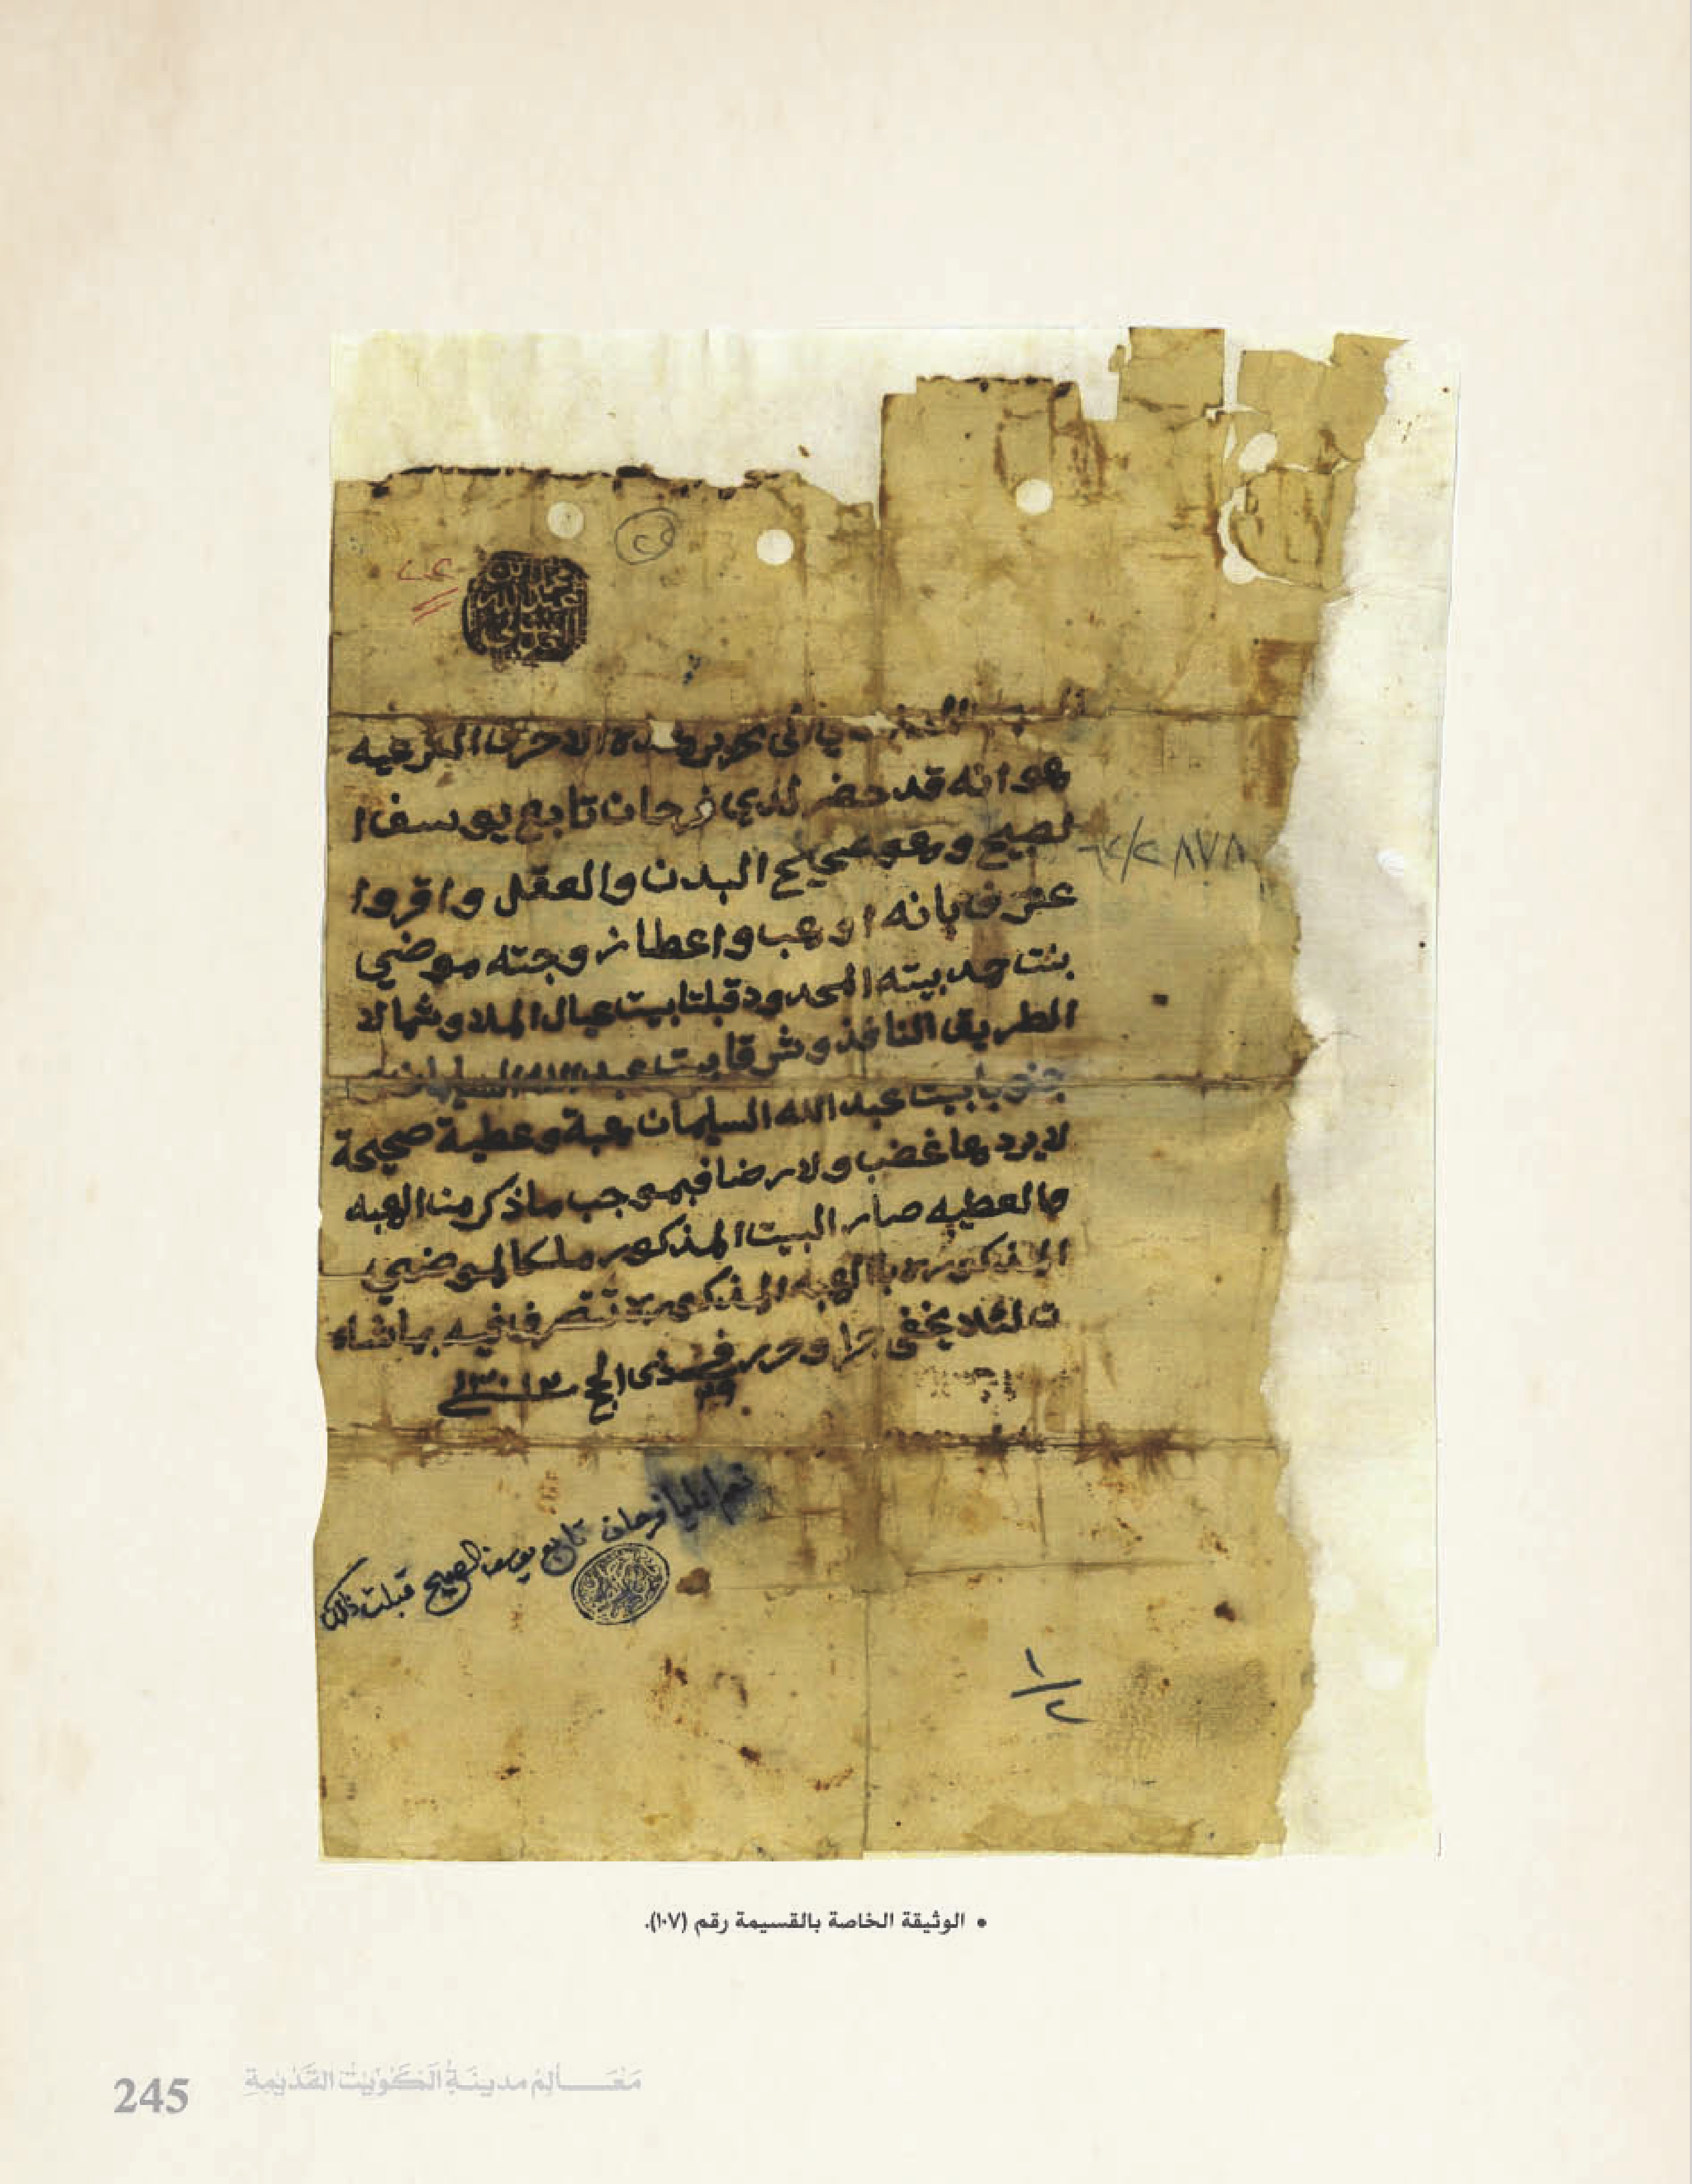 ٢٢
٢٤
محمد بن
عبد الله
العدساني
الى تحرير هذه الاحرف الشرعيه
هو انه قد حضر لدي فرحان تابع يوسف ا
لصبيح وهو صحيح البدن والعقل واقر وا
عترف بانه اوهب واعطا زوجته موضي
بنت حمد بيته المحدود قبلتا بيت عيال الملا وشمالا
الطريق النافذ وشرقا بيت عبد الله السليمان و
جنوبا بيت عبد الله السليمان هبة وعطية صحيحة
لا يردها غضب ولا رضا فبموجب ما ذكر من الهبه
والعطيه صار البيت المذكور ملكا لموضي
المذكوره بالهبه المذكوره تتصرف فيه بما شاء
ت لئلا يخفى جرا وحرر في ٢٩ ذي الحج سنة ١٣١٣
٢/٢ ٨٧٨
نعم انا يا فرحان تابع يوسف الصبيح قبلت ذلك
١/٢
• الوثيقة الخاصة بالقسيمة رقم (١٠٧).
245 مَعَـــالِمُ مدينَةِ الكُوَيْتِ القَدْيمَةِ